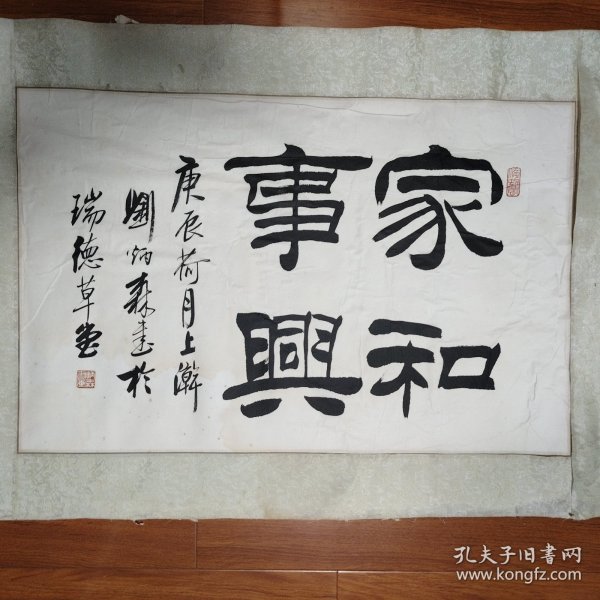 家和
事興
庚辰荷月上澣
劉炳森書於
瑞德草堂
孔夫子旧書网
www.kongfz.com